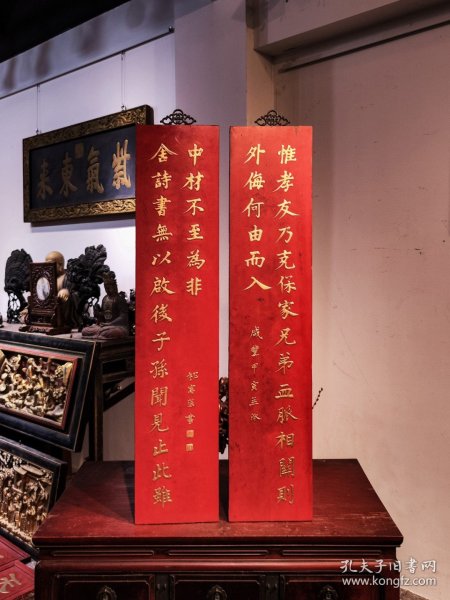 紫氣東來
惟孝友乃克保家兄弟血脉相關則
外侮何由而入
咸豐甲寅孟秋
舍詩書無以啟後子孫聞見止此雖
中材不至為非
祁寯藻書
孔夫子旧书网
www.kongfz.com